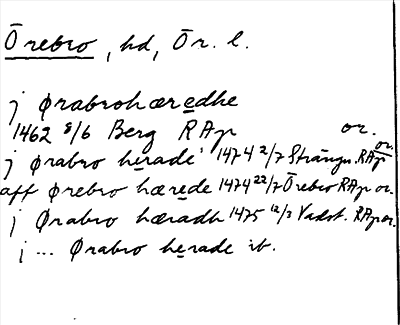 Örebro, hd, Ör. l.
j Ørabrohæredhe
1462 8/6 Berg RAp or.
j Ørabro herade 1474 2/7 Strängn. RAp or.
aff Ørebro hærede 1474 22/7 Örebro RAp or.
j Ørabro hæradh 1475 12/3 Vadst. RAp or.
j ... Ørabro herade ib.